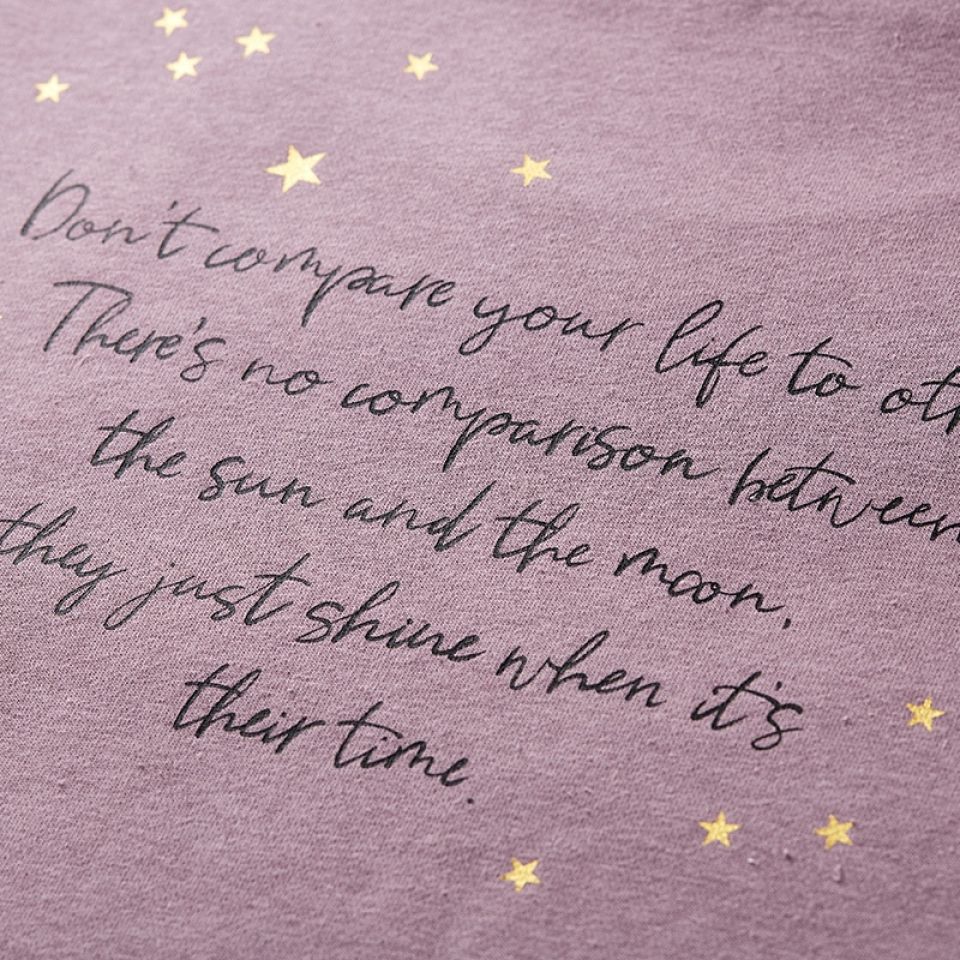 Don't compare your life to oth
There's no comparison between
the sun and the moon,
they just shine when it's
their time.